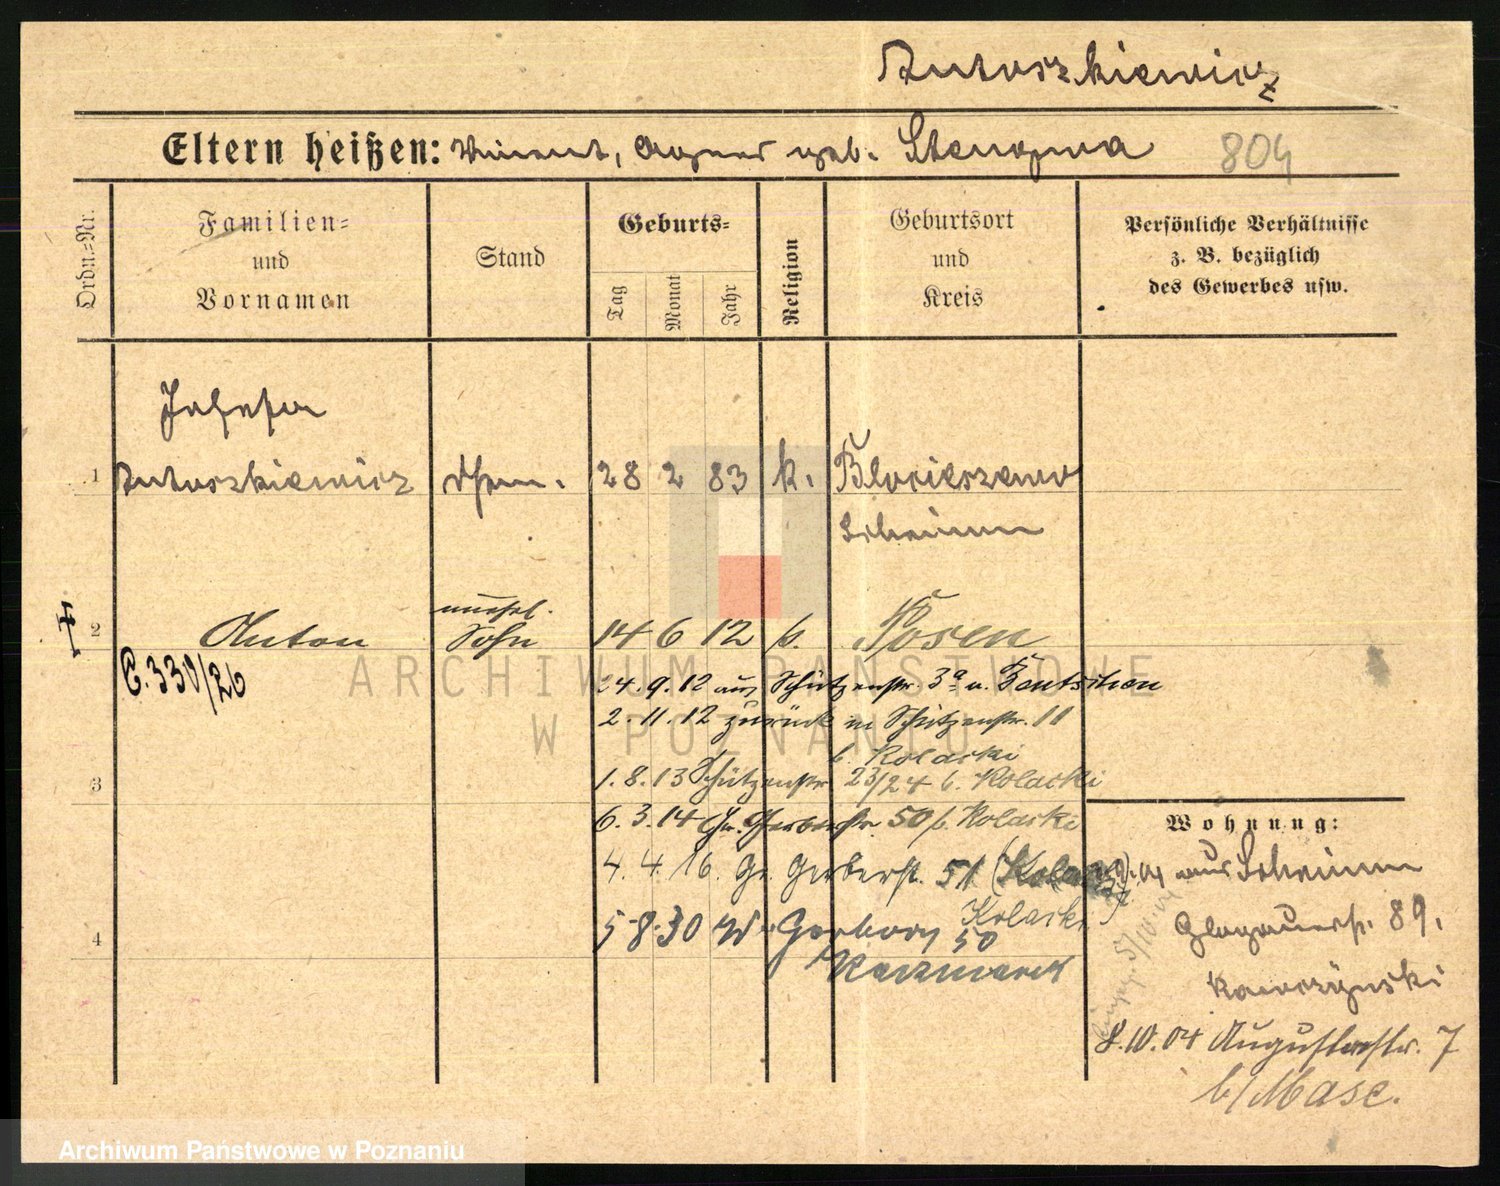 Antoszkiewicz
Eltern heißen: Vincent, Agnes geb. 804
Ordn.-Nr.
Familien-
und
Vornamen
Stand
Geburts-
Tag
Monat
Jahr
Religion
Geburtsort
und
Kreis
Persönliche Verhältnisse
z. B. bezüglich
des Gewerbes usw.
Josefa
1 Antoszkiewicz 28 2 83 k. Blociszewo
Schrimm
unehel.
2 Anton Sohn 14 6 12 k. Posen
C. 330/26
24.9.12 aus Schützenstr. 3a n. Bentschen
2.11.12 zurück n Schützenstr. 11
b. Kolaski
3 1.8.13 Schützenstr 23/24 b. Kolaski
6.3.14 Gr. Gerberstr 50 b. Kolaski
4.4.16. Gr. Gerberst. 51 (Kolaski
Kolaski)
4 5-8-30 W. Garbary 50
Kaczmarek
Wohnung:
aus Schrimm
Glogauerstr. 89.
8.10.04 Augustastr. 7
b/
ARCHIWUM PAŃSTWOWE
W POZNANIU
Archiwum Państwowe w Poznaniu